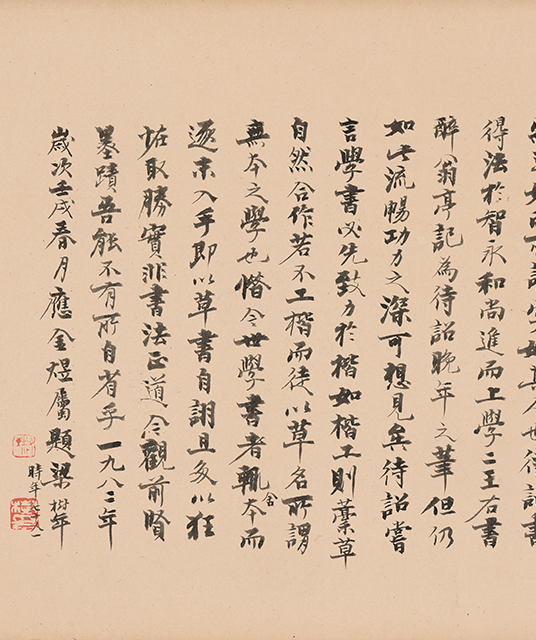 得法於智永和尚進而上學二王右書
醉翁亭記為待詔晚年之筆但仍
如此流暢功力之深可想見矣待詔嘗
言學書必先致力於楷如楷工則藁草
自然合作若不工楷而徒以草名所謂
無本之學也惜今世學書者輒舍本而
逐末入手即以草書自詡且多以狂
怪取勝實非書法正道今觀前賢
墨蹟吾能不有所自省乎一九八二年
歲次壬戌春月應金煜屬題梁樹年
時年七十一